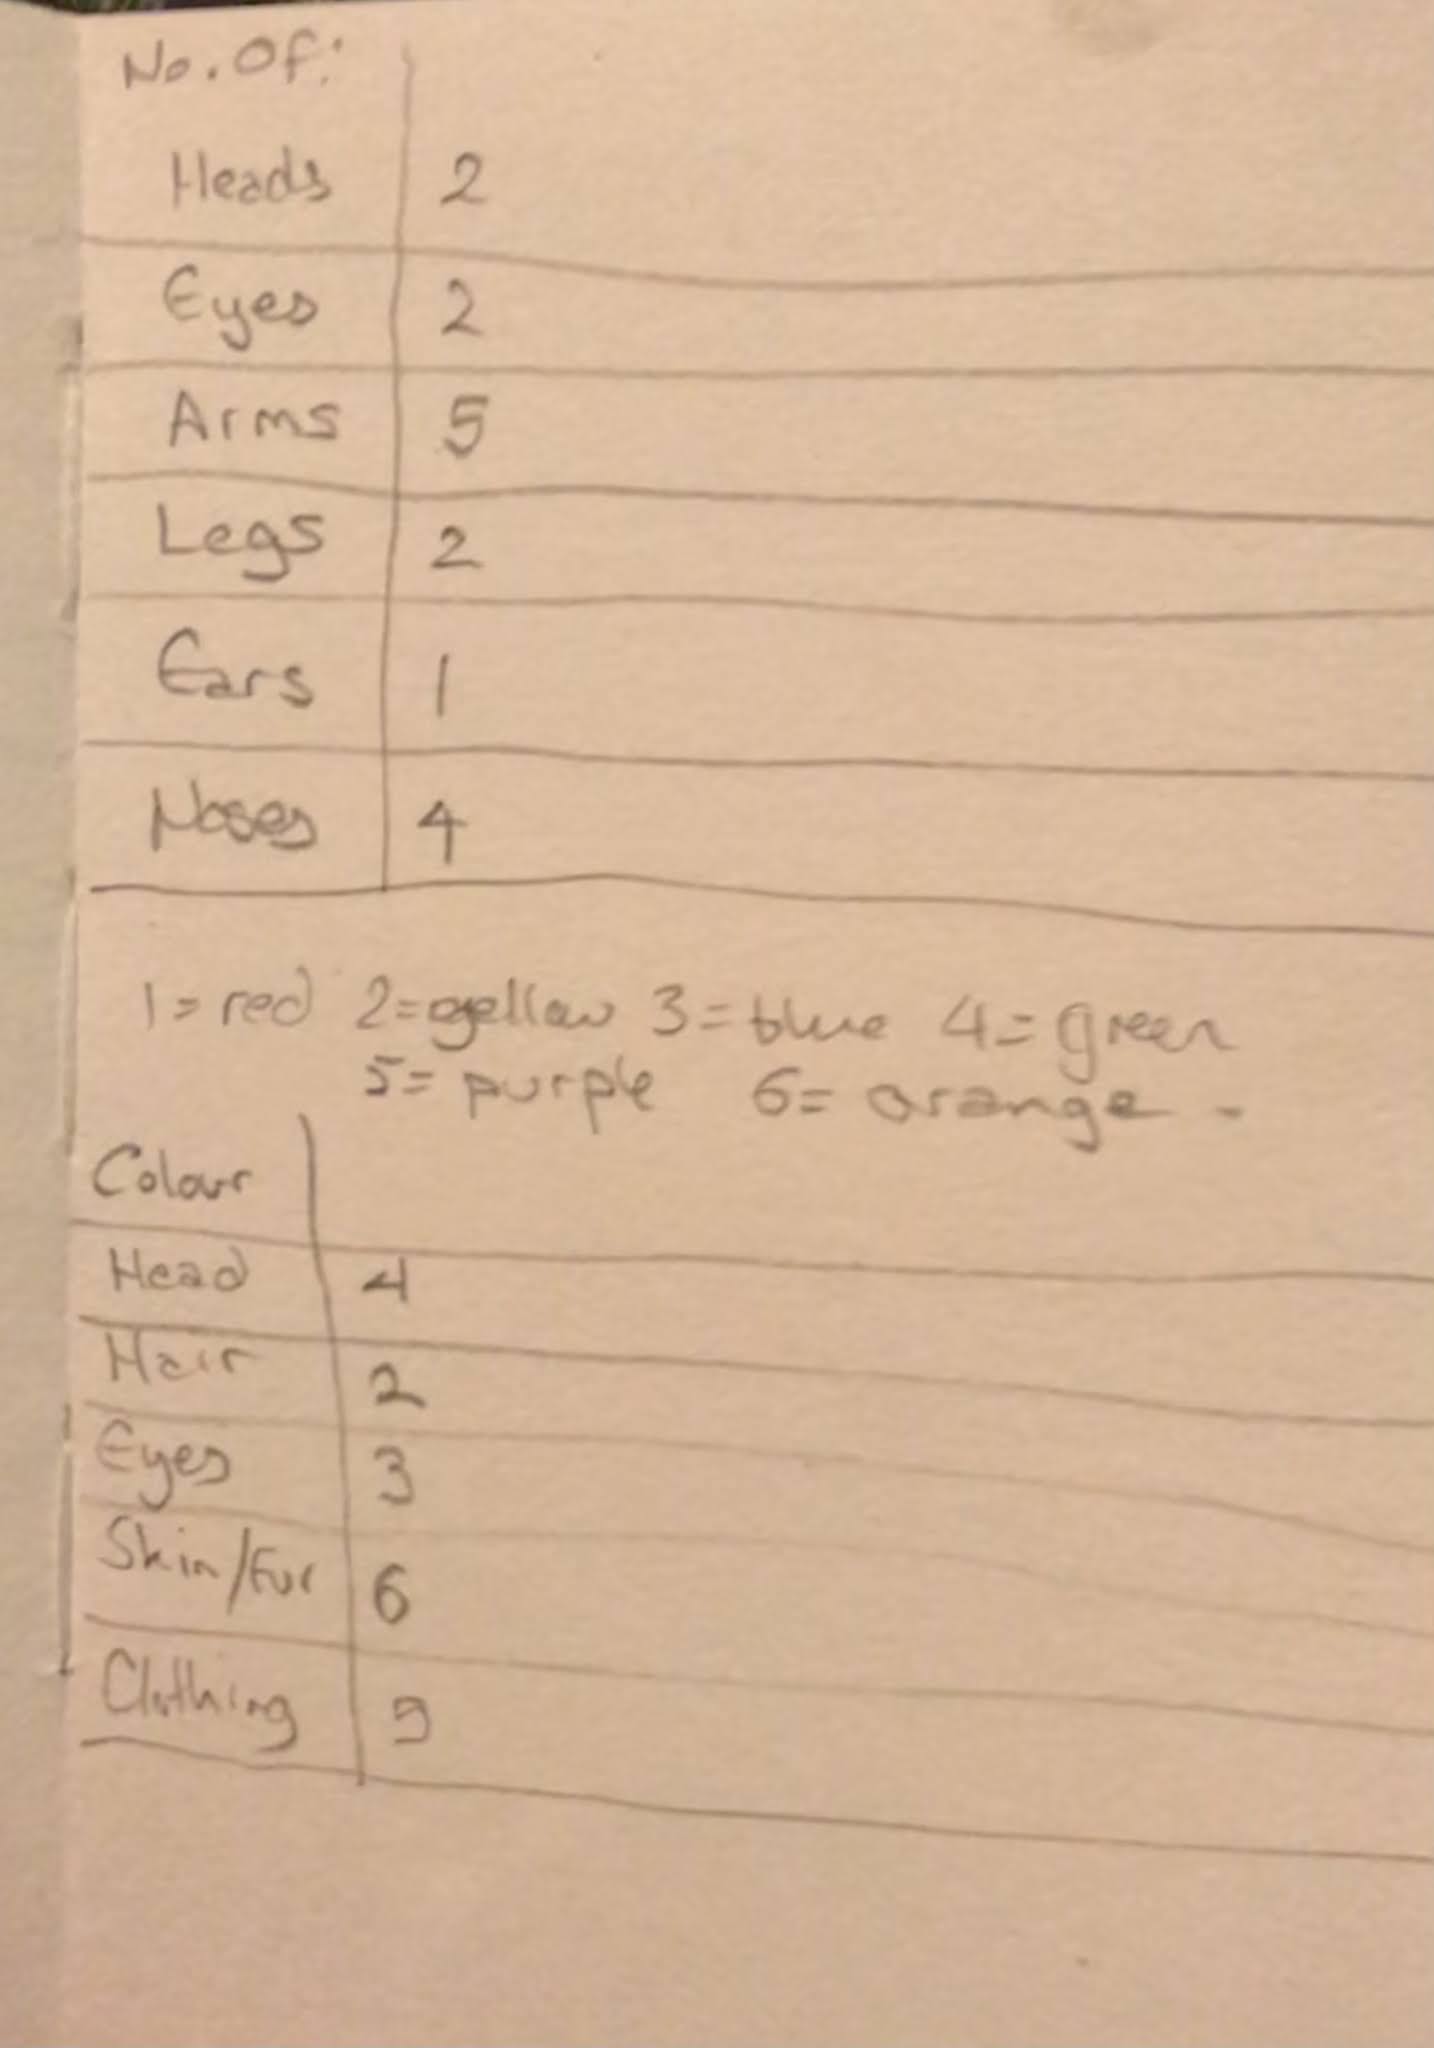 No. Of:
Heads 2
Eyes 2
Arms 5
Legs 2
Ears 1
Noses 4
1=red 2=yellow 3=blue 4=green
5=purple 6=orange -
Colour
Head 4
Hair 2
Eyes 3
Skin/Fur 6
Clothing 5